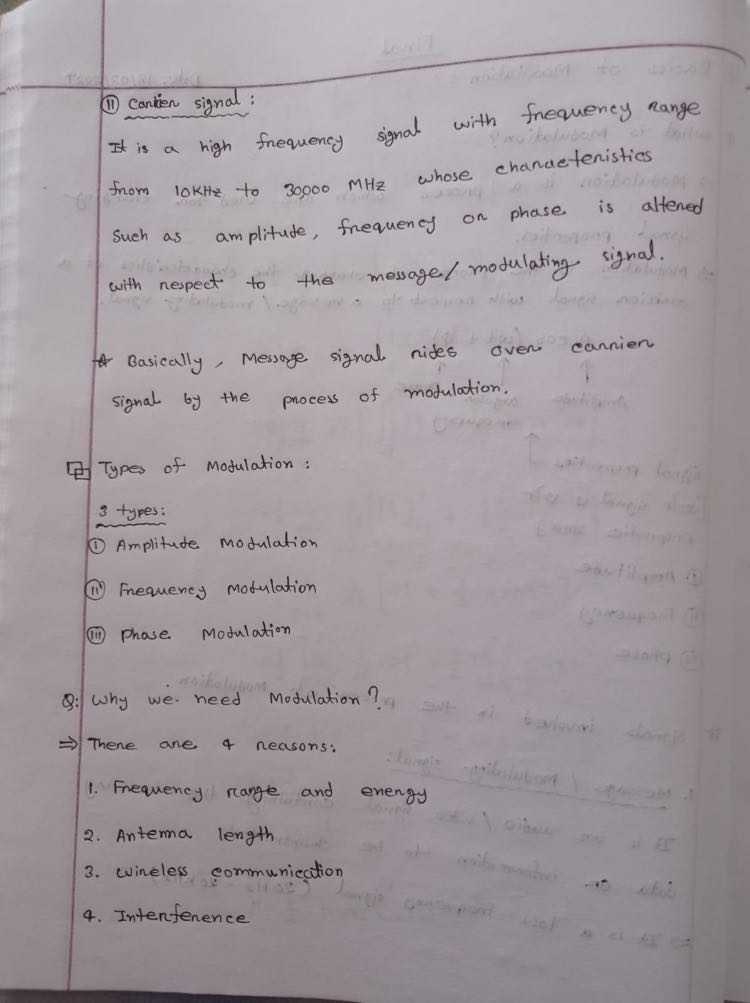 (II) Carrier signal :
It is a high frequency signal with frequency range
from 10KHz to 30,000 MHz whose characteristics
such as amplitude, frequency or phase is altered
with respect to the message/modulating signal.
☆ Basically, Message signal rides over carrier
signal by the process of modulation.
Types of Modulation :
3 types:
(I) Amplitude Modulation
(II) Frequency Modulation
(III) Phase Modulation
Q: Why we need Modulation?
⇒ There are 4 reasons:
1. Frequency range and energy
2. Antenna length
3. Wireless communication
4. Interference